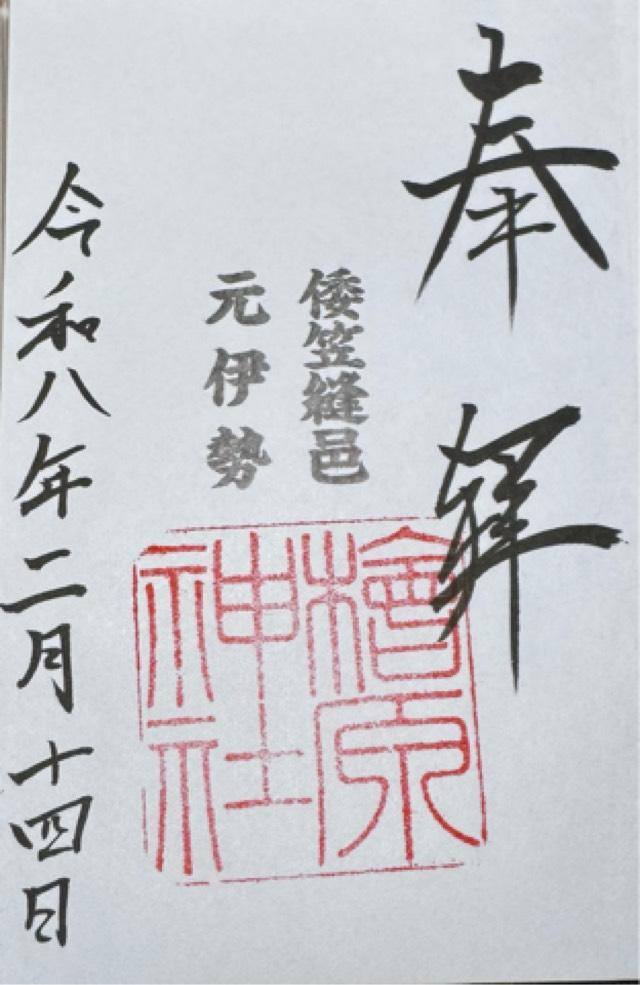 奉拝
倭笠縫邑
元伊勢
檜原
神社
令和八年二月十四日